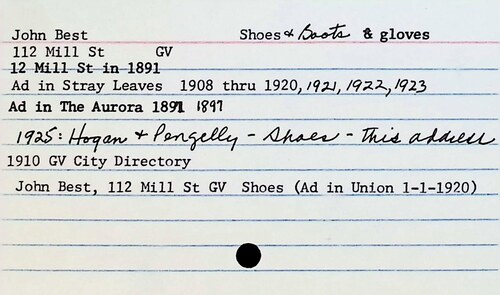 John Best Shoes & Boots & gloves
112 Mill St GV
12 Mill St in 1891
Ad in Stray Leaves 1908 thru 1920, 1921, 1922, 1923
Ad in The Aurora 1891 1897
1925: Hogan & Pengelly - Shoes - This address
1910 GV City Directory
John Best, 112 Mill St GV Shoes (Ad in Union 1-1-1920)